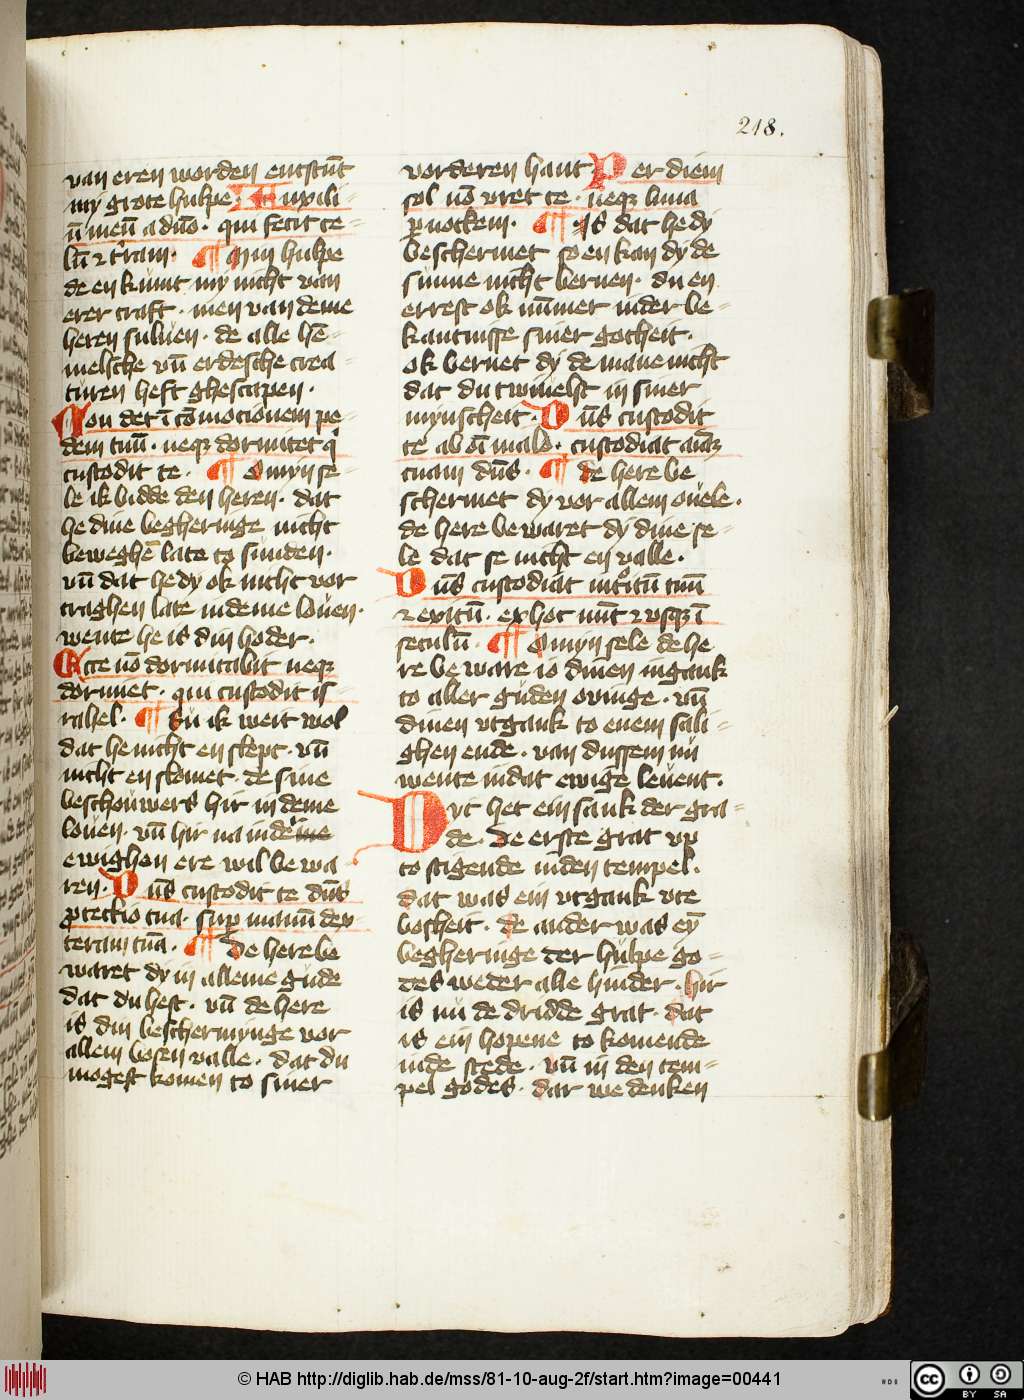 218.
van eren worden entstūt
my grote hulpe. Auxili-
ū meū a dn̄o. qui fecit ce-
lū ⁊ t'ram. ¶ Myn hulpe
de en kumt my nicht van
erer craft. men van deme
heren suluen. de alle hē-
melsche vn̄ erdesche crea-
turen heft ghescapen.
Non det ī cōmocionem pe-
dem tuū. neqꝫ dormitet q'
custodit te. ¶ O myn se-
le ik bidde den heren. dat
he dine begheringe nicht
beweghē late to sunden.
vn̄ dat he dy ok nicht vor
traghen late indeme louen.
wente he is din hoder.
Ecce nō dormitabit neqꝫ
dormiet. qui custodit is-
rahel. ¶ Su ik weit wol
dat he nicht en slept. vn̄
nicht en slomet. de sine
beschouwers hir in deme
louen. vn̄ hir na in der
ewighen ere wil be wa
ren. Dn̄s custodit te dn̄s
ꝓtectio tua. suꝑ manū dex-
teram tuā. ¶ De here be
waret dy in alleme gude
dat du hest. vn̄ de here
is din beschermynge vor
allem bosen valle. dat du
mogest komen to siner
vorderen hant Per diem
sol nō vret te. neqꝫ luna
ꝑ noctem. ¶ Is dat he dy
beschermet so en kan dy de
sunne nicht bernen. du en
errest ok nūmer in der be-
kantnisse siner gotheit.
ok bernet dy de mane nicht
dat du twiuelst in siner
mynscheit. Dn̄s custodit
te ab oī malo. custodiat aīaꝫ
tuam dn̄s. ¶ de here be
schermet dy vor allem ouele.
de here bewaret dy dine se-
le dat se nicht en valle.
Dn̄s custodiat introitū tuū
⁊ exitū. ex hoc nūc ⁊ vsqꝫ ī
seculū. ¶ O myn sele de he
re be ware io dinen ingank
to aller guden ouinge. vn̄
dinen vtgank to enem sali-
ghen ende. van dussem nu
wente in dat ewige leuent.
Dyt het ein sank der gra-
de. De erste grat vp
to stigende in den tempel.
dat was ein vtgank vte
bosheit. de ander was eȳ
begheringe der hulpe go-
des weder alle hinder. hir
is nu de dridde grat. dat
is ein hopene to komende
in de stede. vn̄ in den tem-
pel godes. dar we denken
© HAB http://diglib.hab.de/mss/81-10-aug-2f/start.htm?image=00441
HAB
cc BY SA